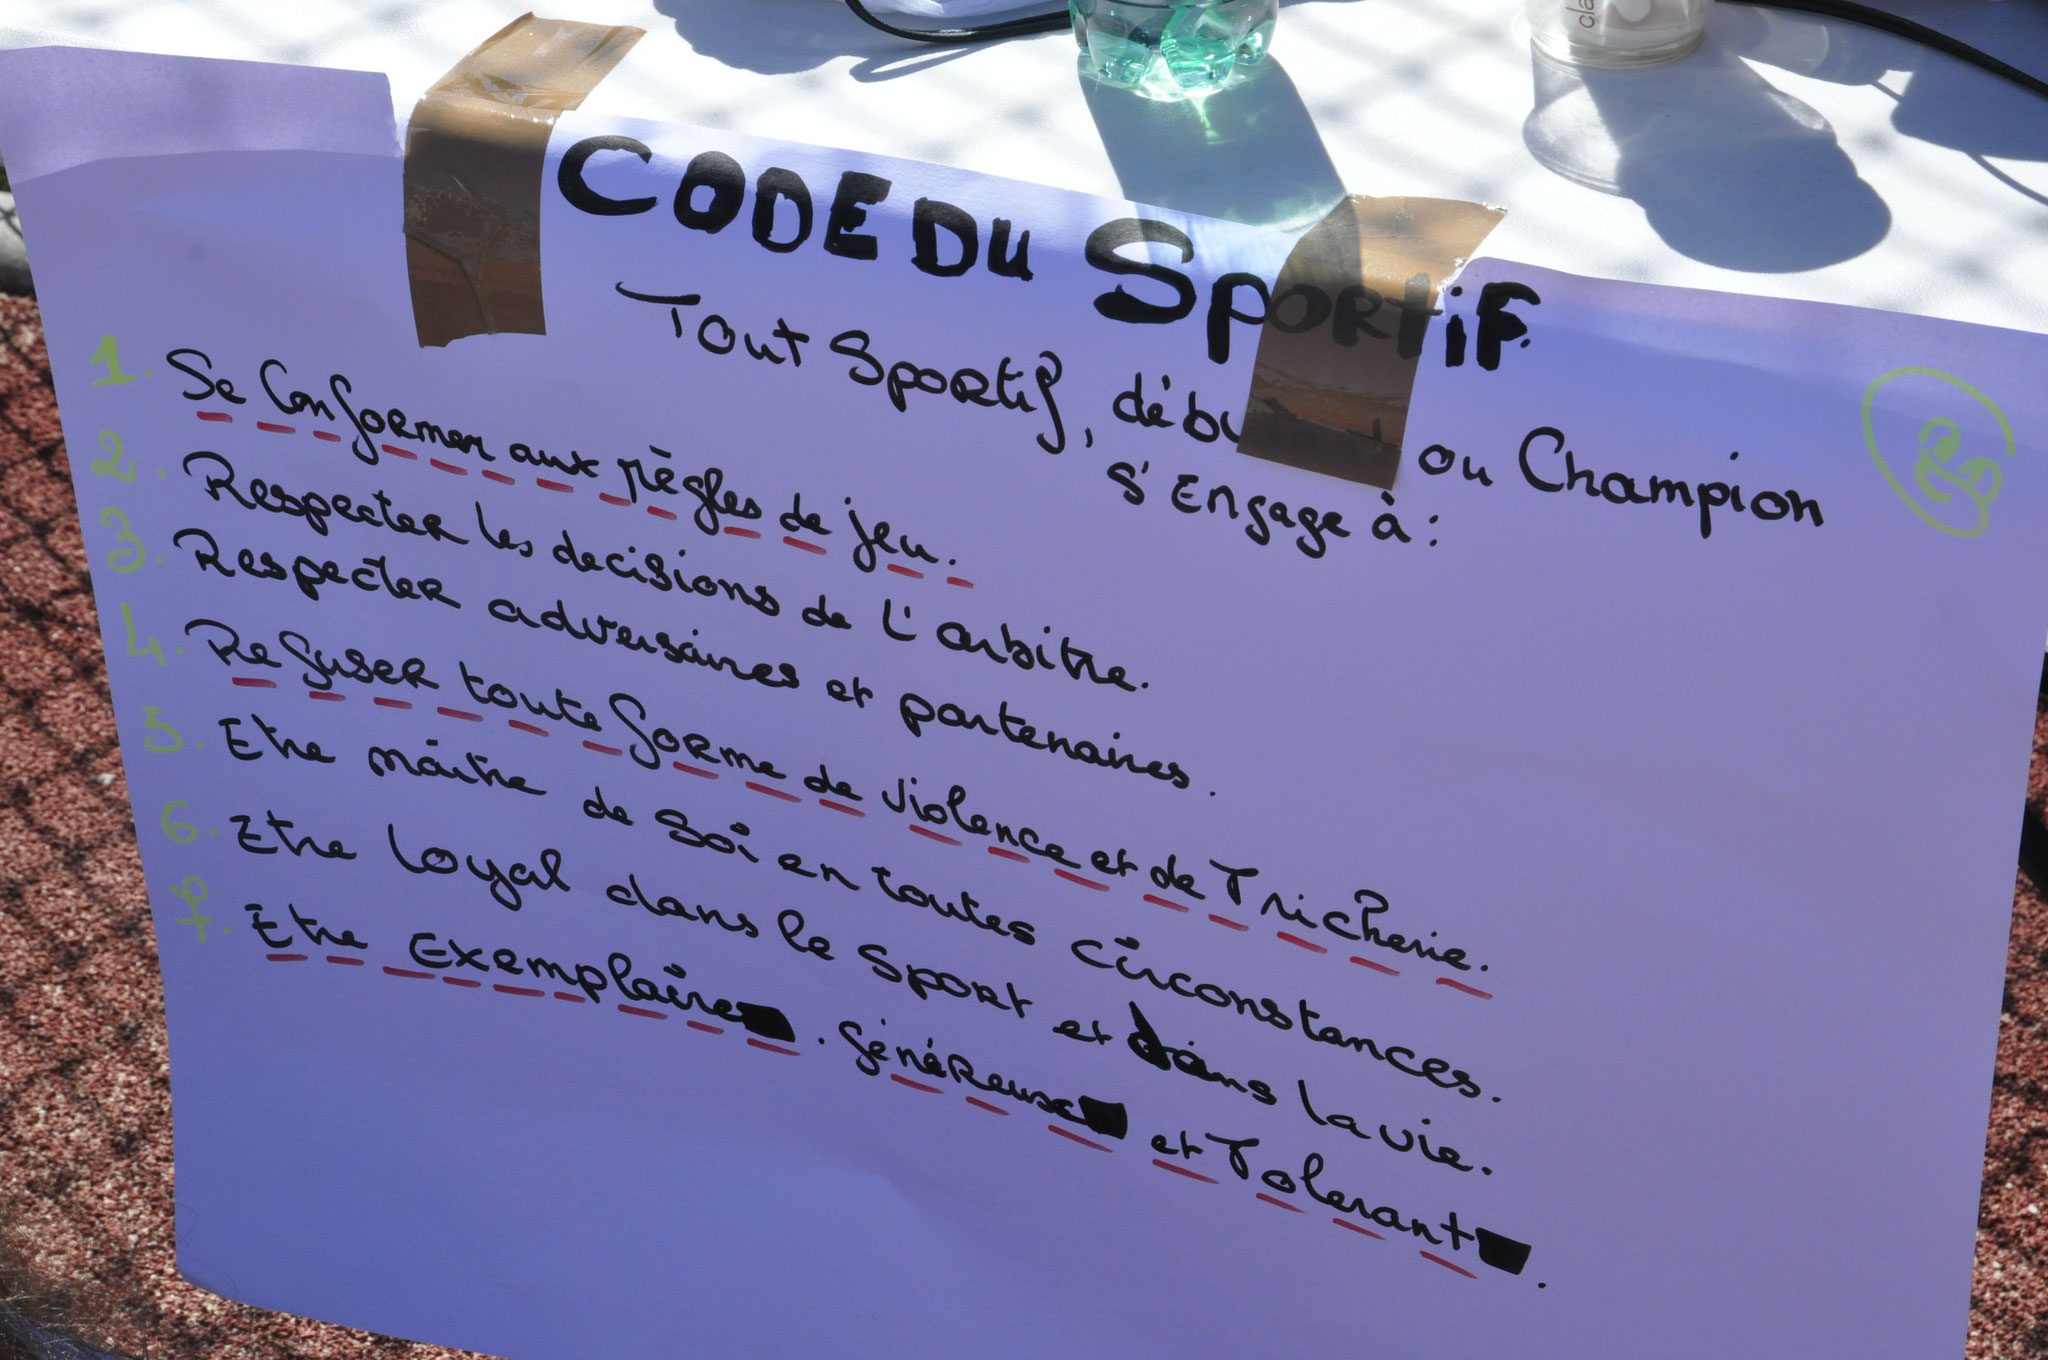 CODE DU SPORTIF
Tout Sportif, débu ou Champion
s'Engage à :
1. Se Conformer aux règles de jeu.
2. Respecter les decisions de l'arbitre.
3. Respecter adversaires et partenaires.
4. Refuser toute forme de violence et de Tricherie.
5. Etre maitre de soi en toutes circonstances.
6. Etre loyal dans le sport et dans la vie.
7. Etre exemplaire. Généreux et Tolerant.
cla